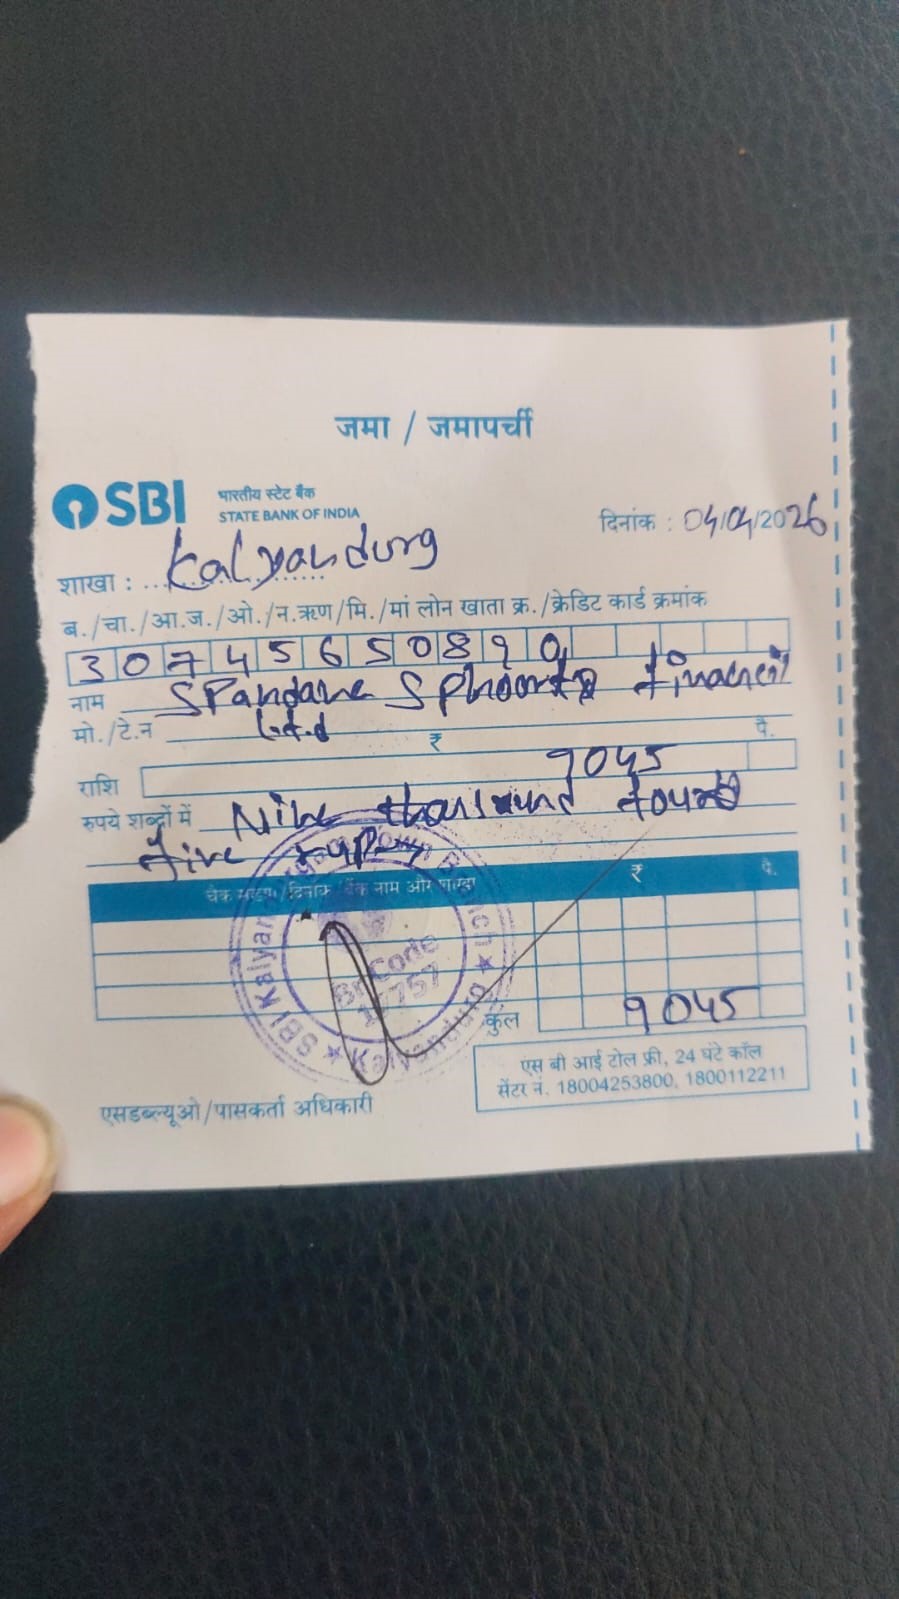 जमा / जमापर्ची
SBI भारतीय स्टेट बैंक
STATE BANK OF INDIA
दिनांक : 04/04/2026
शाखा : Kalyandurg
ब./चा./आ.ज./ओ./न.ऋण/मि./मां लोन खाता क्र./क्रेडिट कार्ड क्रमांक
30745650890
नाम Spandana Sphoorty financeil
मो./टे.न L.t.d
₹ पै.
राशि 9045
रुपये शब्दों में Nine thousund fourty
five rupees
चैक संख्या/दिनांक बैंक नाम और शाखा ₹ पै.
SBI Kalyandurg Town Branch
Br.Code
17757
Kalyandurg
कुल 9045
एस बी आई टोल फ्री, 24 घंटे कॉल
सेंटर नं. 18004253800, 1800112211
एसडब्ल्यूओ/पासकर्ता अधिकारी